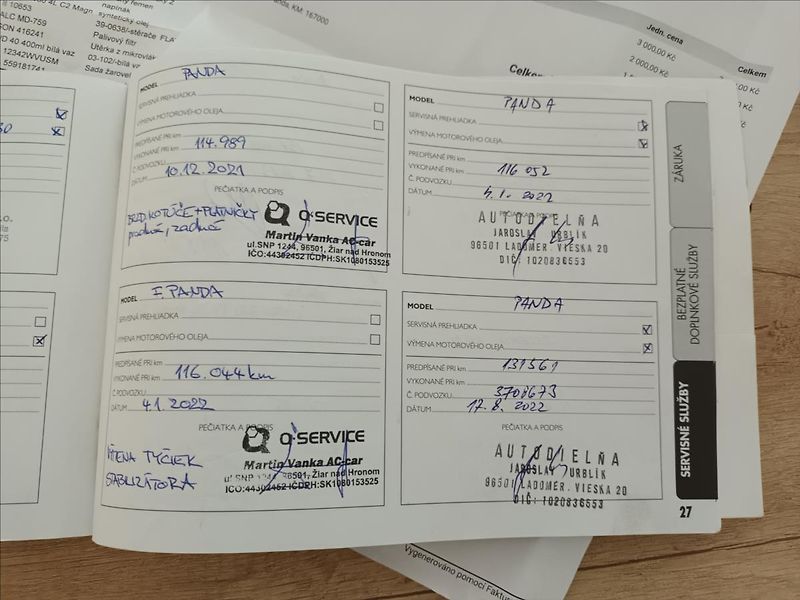 napínák
syntetický olej
39-0638/-stěrače FLA
Palivový filtr
Utěrka z mikrovlák
03-102/-bílá va
Sada žárovel
4L C2 Magn
ALC MD-759
SON 416241
40 400ml bílá vaz
12342WVUSM
559181741
KM: 167000
Jedn. cena
3 000,00 Kč
2 000,00 Kč
Celkem
MODEL PANDA
SERVISNÁ PREHLIADKA
VÝMENA MOTOROVÉHO OLEJA
PREDPÍSANÉ PRI km
VYKONANÉ PRI km 114.989
Č. PODVOZKU
DÁTUM 10.12.2021
PEČIATKA A PODPIS
BRZD.KOTÚČE+PLATNIČKY
predné, zadné
Q-SERVICE
Martin Vanka AC-car
ul.SNP 1244, 96501, Žiar nad Hronom
IČO:44302452 IČDPH:SK1080153525
MODEL F. PANDA
SERVISNÁ PREHLIADKA
VÝMENA MOTOROVÉHO OLEJA
PREDPÍSANÉ PRI km
VYKONANÉ PRI km 116.044km
Č. PODVOZKU
DÁTUM 4.1.2022
PEČIATKA A PODPIS
TYČIEK
STABILIZÁTORA
Q-SERVICE
Martin Vanka AC-car
ul.SNP 1244, 96501, Žiar nad Hronom
IČO:44302452 IČDPH:SK1080153525
MODEL PANDA
SERVISNÁ PREHLIADKA
VÝMENA MOTOROVÉHO OLEJA
PREDPÍSANÉ PRI km
VYKONANÉ PRI km 116 052
Č. PODVOZKU
DÁTUM 5.1. 2022
PEČIATKA A PODPIS
AUTODIELŇA
JAROSLAV URBLÍK
96501 LADOMER. VIESKA 20
DIČ: 1020836553
MODEL PANDA
SERVISNÁ PREHLIADKA
VÝMENA MOTOROVÉHO OLEJA
PREDPÍSANÉ PRI km 131561
VYKONANÉ PRI km
Č. PODVOZKU 3708673
DÁTUM 17.8. 2022
PEČIATKA A PODPIS
AUTODIELŇA
JAROSLAV URBLÍK
96501 LADOMER. VIESKA 20
DIČ: 1020836553
ZÁRUKA
BEZPLATNÉ
DOPLNKOVÉ SLUŽBY
SERVISNÉ SLUŽBY
27
Vygenerováno pomocí Faktur